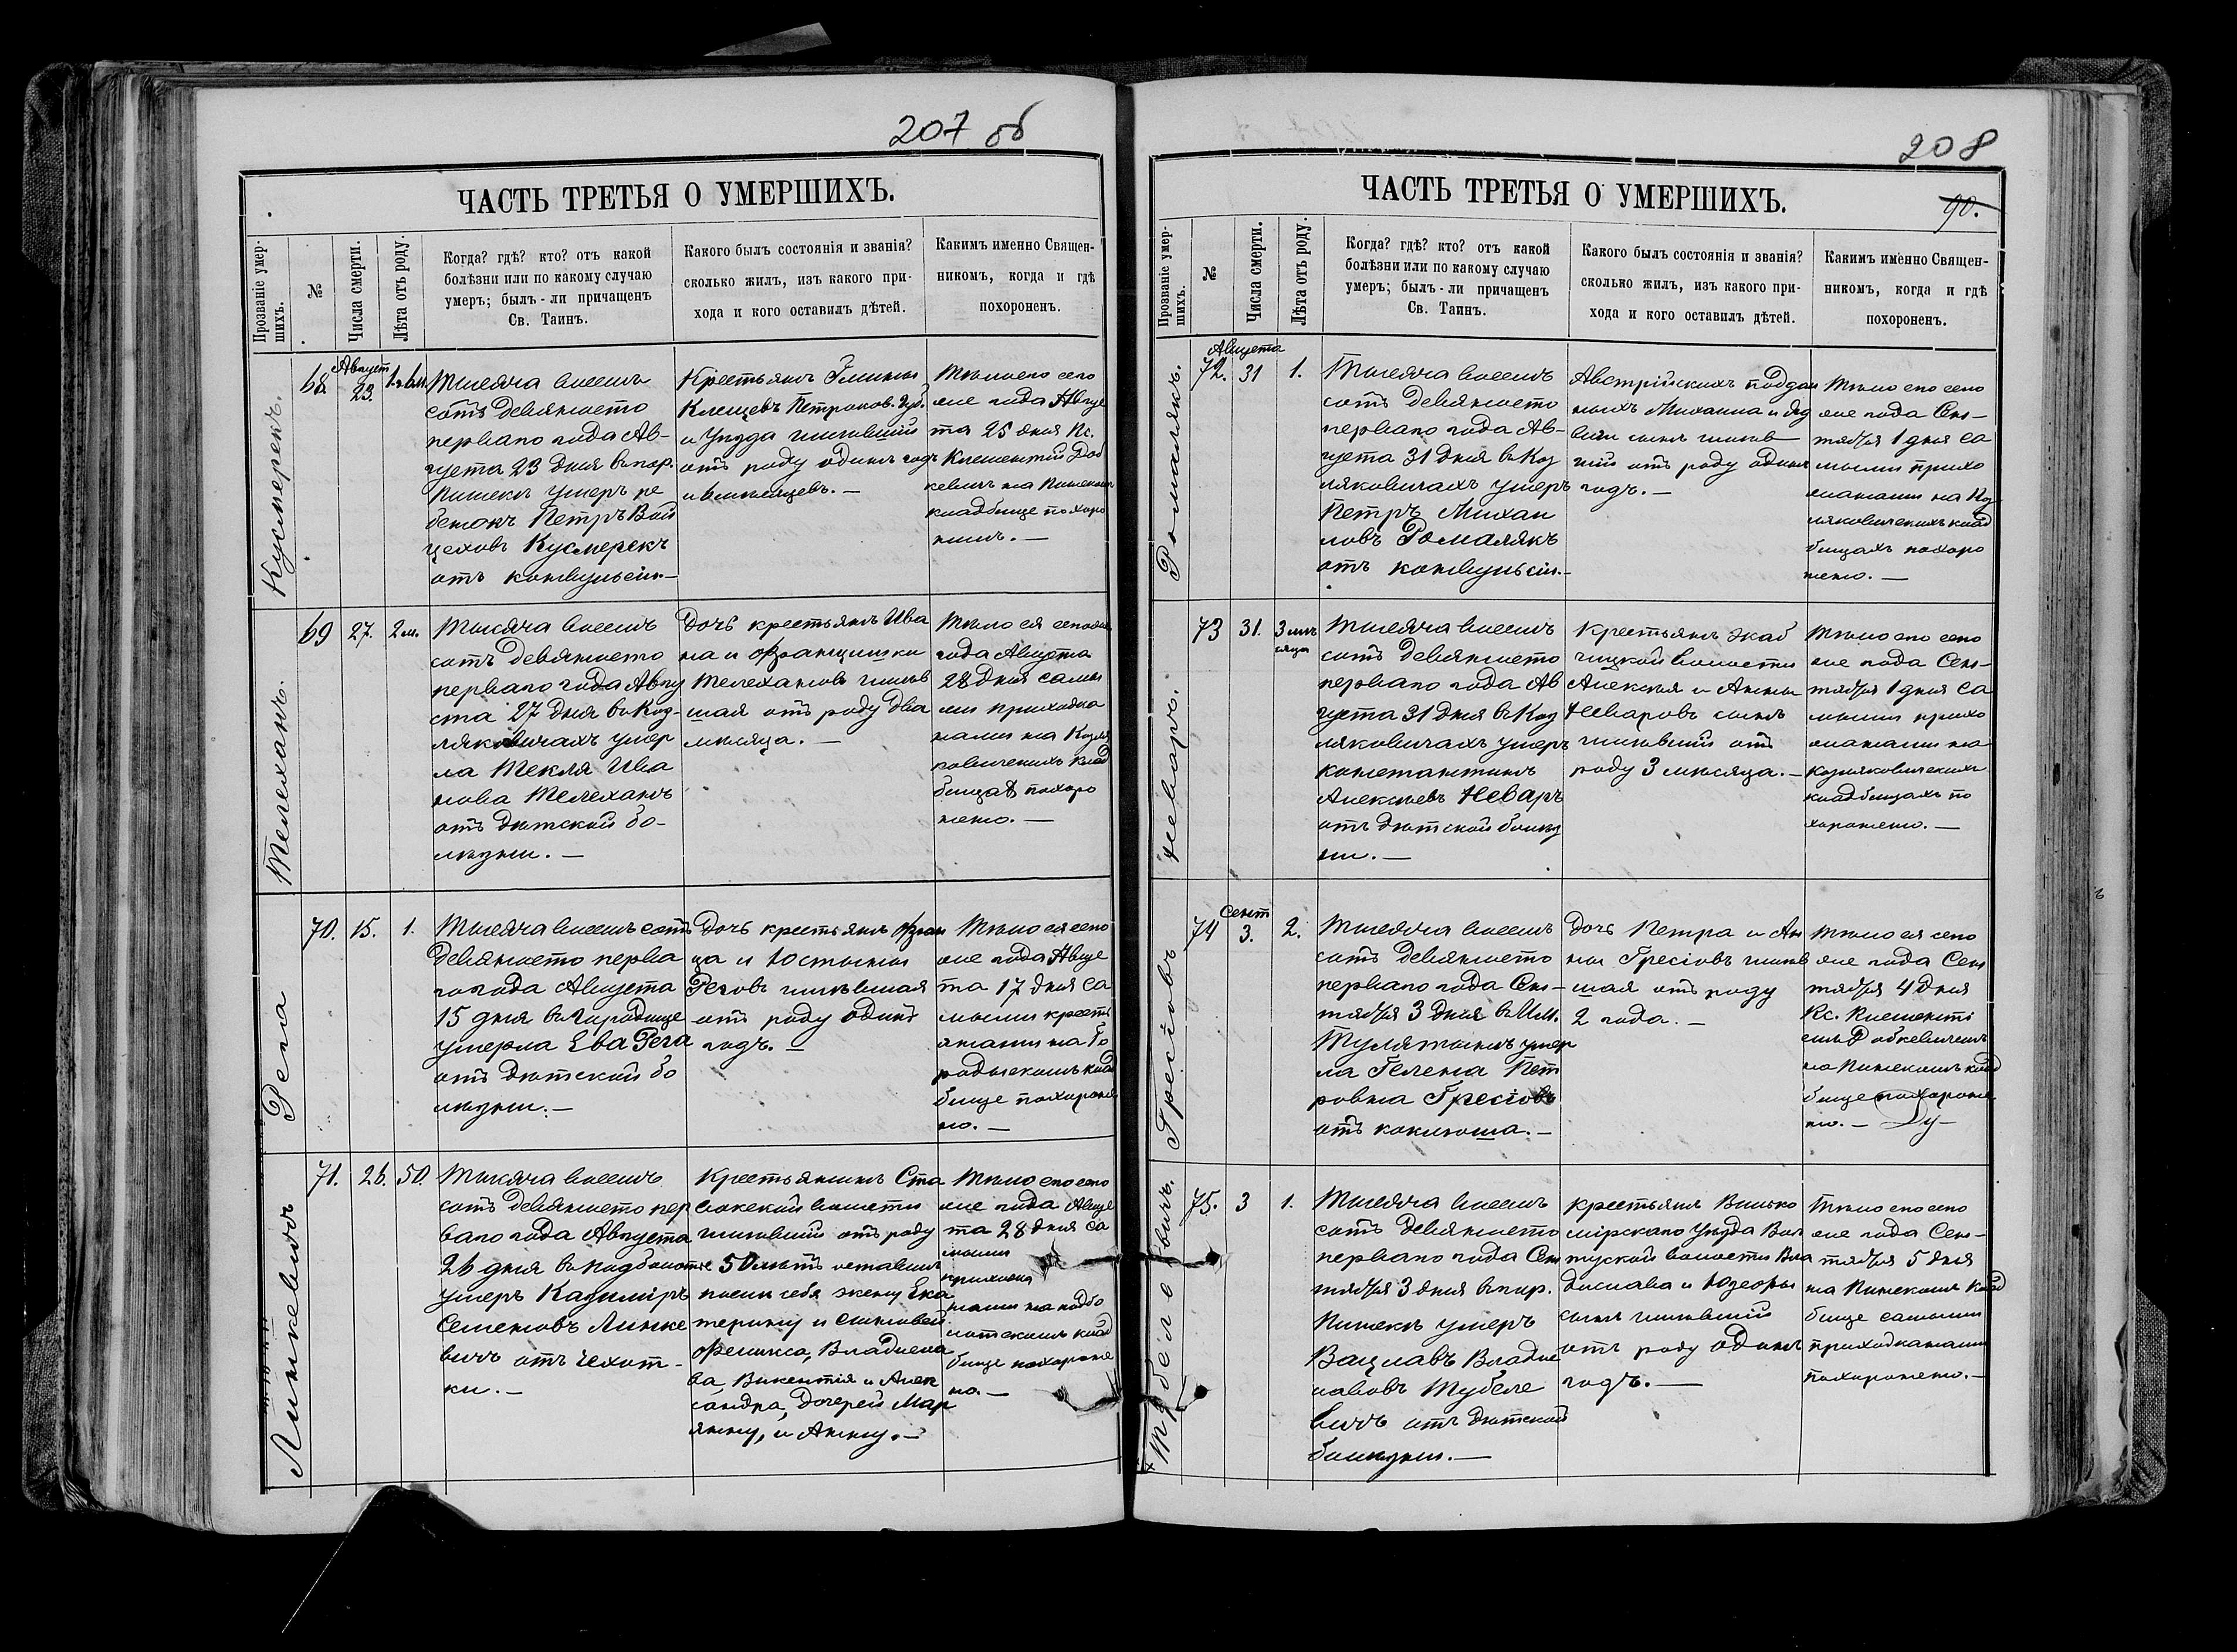 207 об
ЧАСТЬ ТРЕТЬЯ О УМЕРШИХЪ.
Прозваніе умер-
шихъ.
№
Числа смерти.
Лѣта отъ роду.
Когда? гдѣ? кто? отъ какой
болѣзни или по какому случаю
умеръ; былъ-ли причащенъ
Св. Таинъ.
Какого былъ состоянія и званія?
сколько жилъ, изъ какого при-
хода и кого оставилъ дѣтей.
Какимъ именно Священ-
никомъ, когда и гдѣ
похороненъ.
Кусмерекъ.
68
Август
23.
Тысяча восемь
сотъ девяносто
перваго года Ав-
густа 23 дня въ гор.
Пинскѣ умеръ ре
бенокъ Петръ Вой
цеховъ Кусмерекъ
отъ конвульсіи.—
Крестьянъ Гмины
Клещевъ Петроков. Губ.
и Уѣзда жившій
отъ роду одинъ годъ
и 6 мѣсяцевъ.—
Тѣло его сего
же года Авгус
та 25 дня Кс.
Клементій Доб
кевичъ на Пинскомъ
кладбище похоро
нилъ.—
Телеханъ.
69
27.
2 м.
Тысяча восемь
сотъ девяносто
перваго года Авгу
ста 27 дня въ Коз-
ляковичахъ умер
ла Текля Ива
нова Телеханъ
отъ дѣтской бо-
лѣзни.—
Дочь крестьянъ Ива
на и Францишки
Телехановъ жив
шая отъ роду два
мѣсяца.—
Тѣло ея сего же
года Августа
28 дня самы
ми прихожа
нами на Козля
ковичскихъ клад
бищах похоро
нено.—
Рега
70.
15.
1.
Тысяча восемь сотъ
девяносто перва
го года Августа
15 дня въ Городище
умерла Ева Рега
отъ дѣтской бо
лѣзни.—
Дочь крестьянъ Фран
ца и Юстыны
Реговъ жившая
отъ роду одинъ
годъ.—
Тѣло ея сего
же года Авгус
та 17 дня са
мыми кресть
янами на Го
родыскомъ клад
бище похороне
но.—
Линкевичъ
71.
26.
50.
Тысяча восемь
сотъ девяносто пер
ваго года Августа
26 дня въ Подболотье
умеръ Казиміръ
Семеновъ Линке
вичъ отъ чехот-
ки.—
Крестьянинъ Ста
вокской волости
жившій отъ роду
50 лѣтъ оставилъ
послѣ себя жену Ека
терину и сыновей
Феликса, Владисла
ва, Викентія и Алек
сандра, дочерей Мар
янну, и Анну.—
Тѣло его сего
же года Авгус
та 28 дня са
мыми
прихожа
нами на подбо
лотскомъ клад
бище похороне
но.—
208
90.
ЧАСТЬ ТРЕТЬЯ О УМЕРШИХЪ.
Прозваніе умер-
шихъ.
№
Числа смерти.
Лѣта отъ роду.
Когда? гдѣ? кто? отъ какой
болѣзни или по какому случаю
умеръ; былъ-ли причащенъ
Св. Таинъ.
Какого былъ состоянія и званія?
сколько жилъ, изъ какого при-
хода и кого оставилъ дѣтей.
Какимъ именно Священ-
никомъ, когда и гдѣ
похороненъ.
Ромалякъ.
72.
Августа
31
1.
Тысяча восемь
сотъ девяносто
перваго года Ав-
густа 31 дня въ Коз
ляковичахъ умеръ
Петръ Михаи
ловъ Ромалякъ
отъ конвульсіи.—
Австрійскихъ поддан
ныхъ Михаила и Яд
виги сынъ жив
шій отъ роду одинъ
годъ.—
Тѣло его сего
же года Сен-
тября 1 дня са
мыми прихо
жанами на Коз
ляковичскихъ клад
бищахъ похоро
нено.—
Неваръ.
73
31.
3 мѣ
сяца
Тысяча восемь
сотъ девяносто
перваго года Ав
густа 31 дня въ Коз
ляковичахъ умеръ
Константинъ
Алексѣевъ Неваръ
отъ дѣтской болѣз
ни.—
Крестьянъ Жаб
чицкой волости
Алексѣя и Анны
Неваровъ сынъ
жившій отъ
роду 3 мѣсяца.—
Тѣло его сего
же года Сен-
тября 1 дня са
мыми прихо
жанами на
Козляковичскихъ
кладбищахъ по
хоронено.—
Гресіовъ
74
Сент
3.
2.
Тысяча восемь
сотъ девяносто
перваго года Сен-
тября 3 дня въ Им.
Тулятынъ умер
ла Гелена Пет
ровна Гресіовъ
отъ коклюша.—
Дочь Петра и Ан
ны Гресіовъ жив
шая отъ роду
2 года.—
Тѣло ея сего
же года Сен
тября 4 дня
Кс. Клементі
емъ Добкевичемъ
на Пинскомъ клад
бище похороне
но.—
Тубелевичъ.
75.
3
1.
Тысяча восемь
сотъ девяносто
перваго года Сен
тября 3 дня въ гор.
Пинскѣ умеръ
Вацлавъ Владис
лавовъ Тубеле
вичъ отъ дѣтской
болѣзни.—
Крестьянъ Вилько
мірскаго Уѣзда
волости Вла
дислава и Юзефы
сынъ жившій
отъ роду одинъ
годъ.—
Тѣло его сего
же года Сен-
тября 5 дня
на Пинскомъ клад
бище самыми
прихожанами
похоронено.—